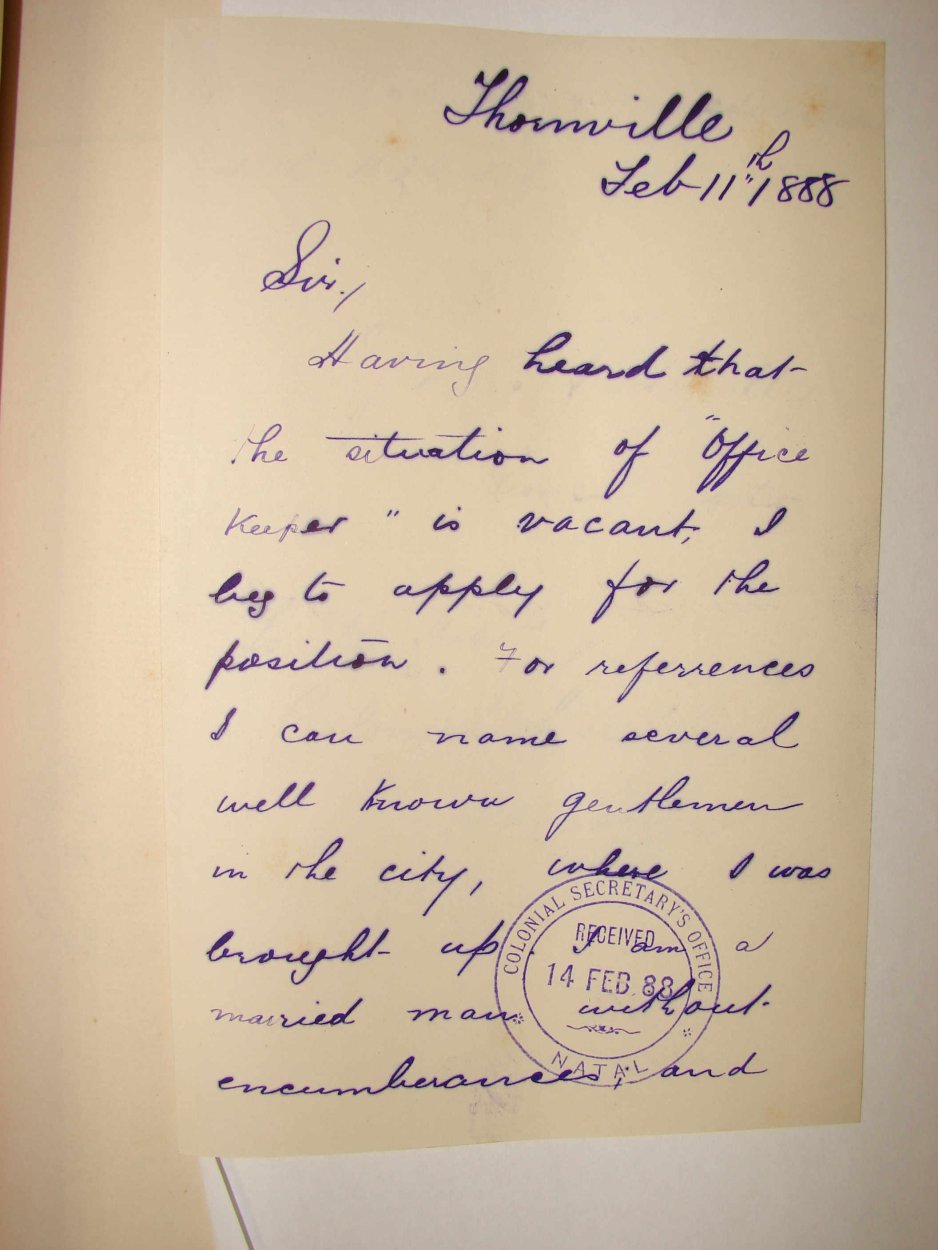 Thornville
Feb 11th 1888
Sir,
Having heard that
the situation of "Office
Keeper" is vacant, I
beg to apply for the
position. For referrences
I can name several
well known gentlemen
in the city, where I was
brought up. I am a
married man without
encumberances, and
COLONIAL SECRETARY'S OFFICE
RECEIVED
14 FEB. 88
NATAL